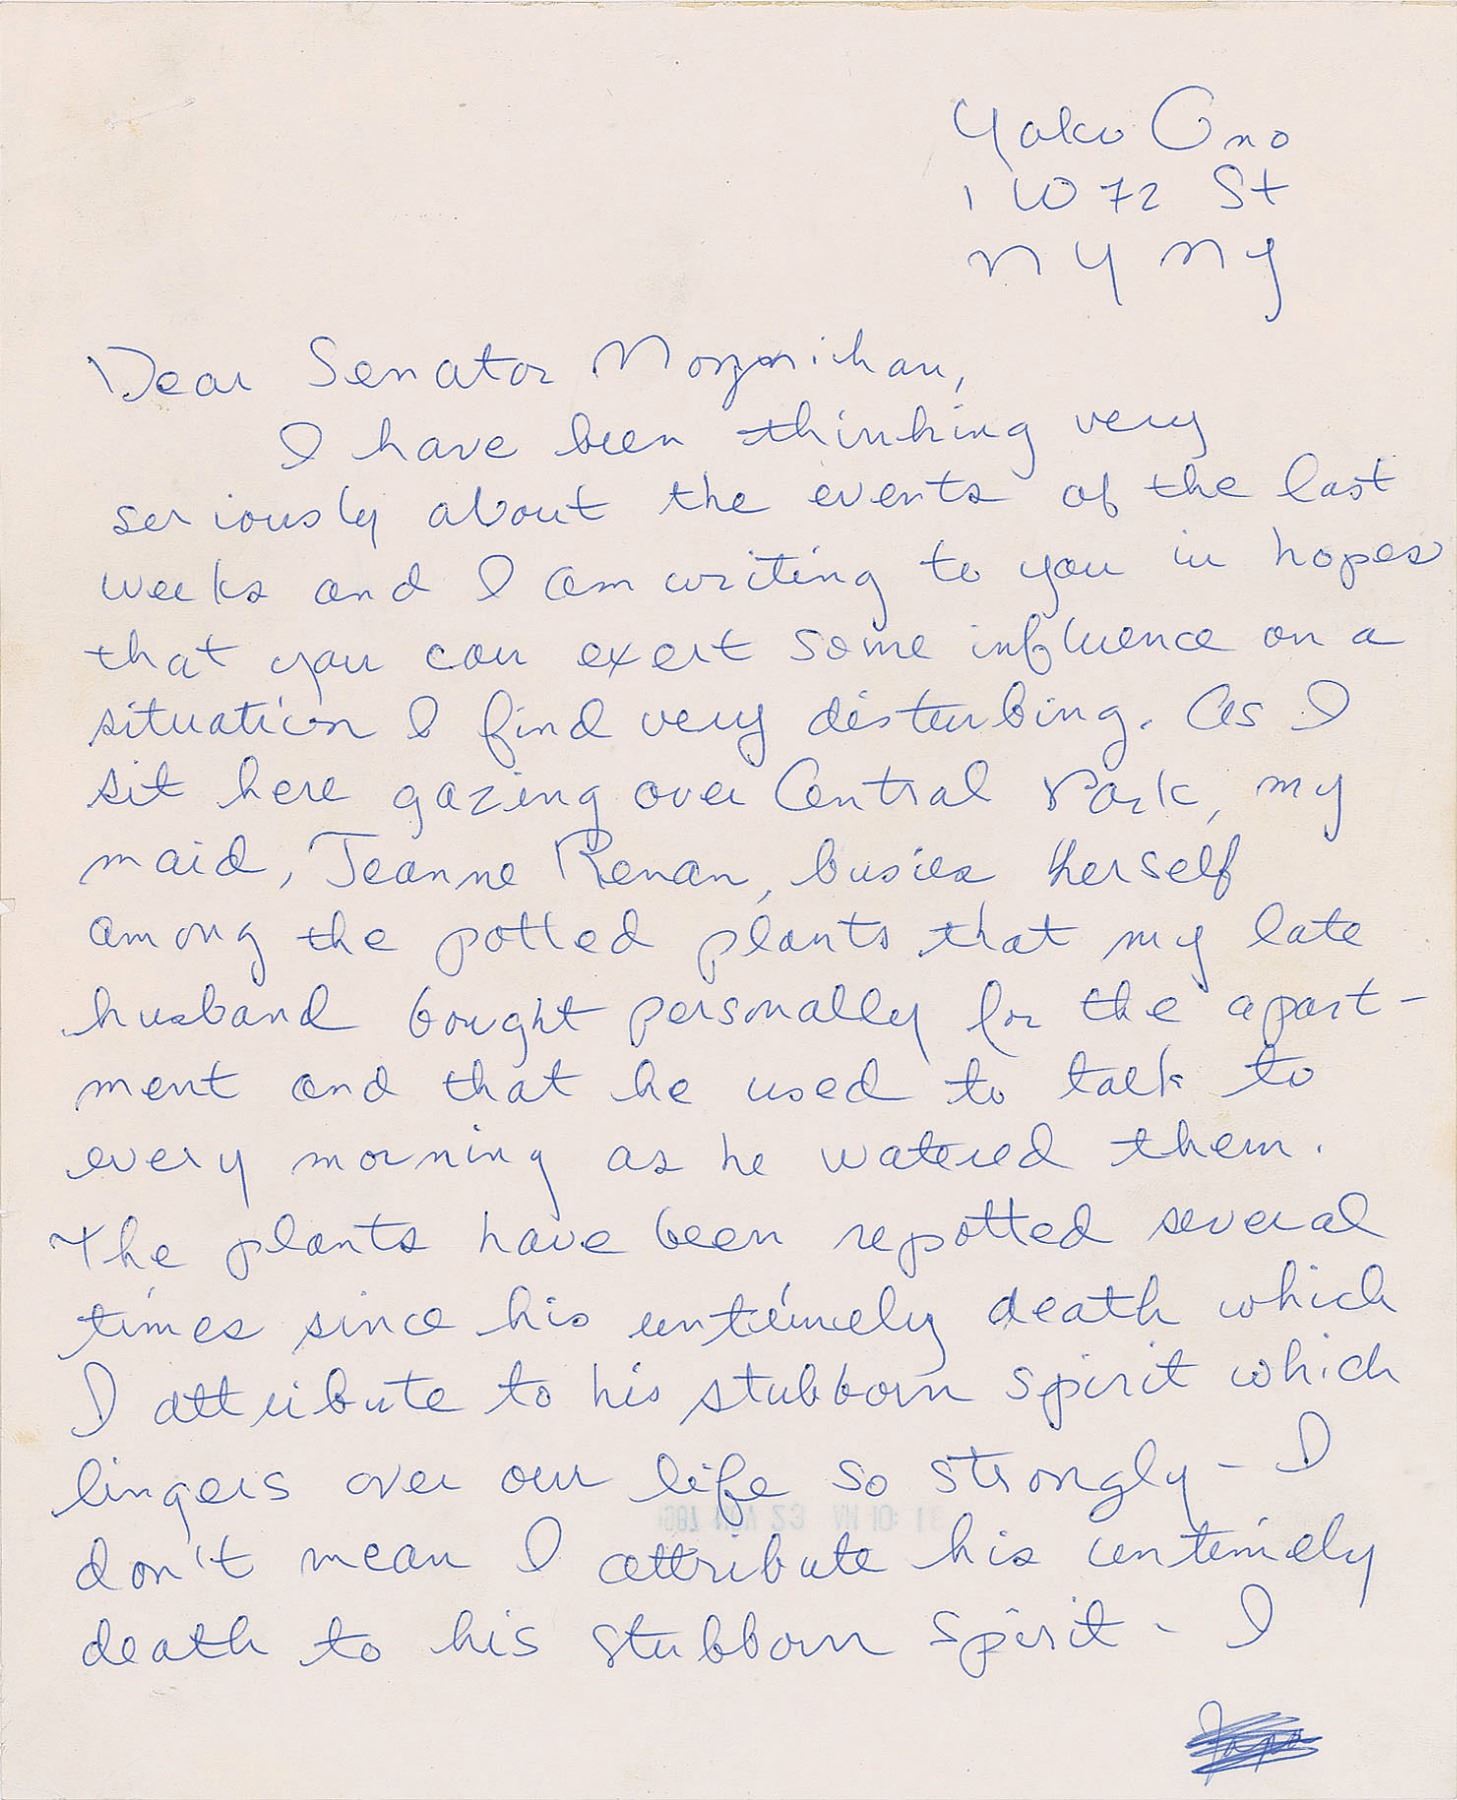 Yoko Ono
1 W 72 St
NY NY
Dear Senator Moynihan,
I have been thinking very
seriously about the events of the last
weeks and I am writing to you in hopes
that you can exert some influence on a
situation I find very disturbing. As I
sit here gazing over Central Park, my
maid, Jeanne Renan, busies herself
among the potted plants that my late
husband bought personally for the apart-
ment and that he used to talk to
every morning as he watered them.
The plants have been repotted several
times since his untimely death which
I attribute to his stubborn spirit which
lingers over our life so strongly - I
don't mean I attribute his untimely
death to his stubborn spirit - I